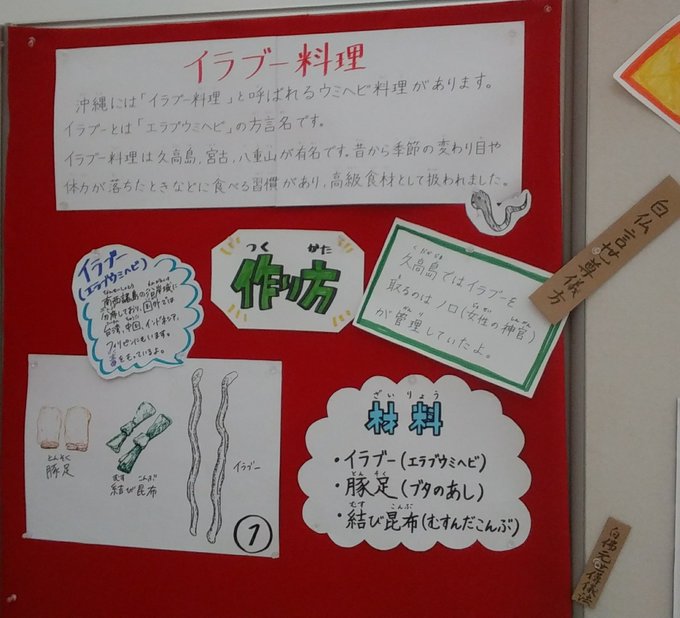 イラブー料理
沖縄には「イラブー料理」と呼ばれるウミヘビ料理があります。
イラブーとは「エラブウミヘビ」の方言名です。
イラブー料理は久高島,宮古,八重山が有名です。昔から季節の変わり目や
体力が落ちたときなどに食べる習慣があり,高級食材として扱われました。
イラブー
(エラブウミヘビ)
南西諸島の沿岸域に
分布しており、国外では
台湾、中国、インドネシア、
フィリピンにもいます。
毒をもっているよ。
つく かた
作り方
くだかじま
久高島ではイラブーを
取るのはノロ(女性の神官)
が管理していたよ。
とんそく
豚足
むす こんぶ
結び昆布
イラブー
1
ざいりょう
材料
・イラブー(エラブウミヘビ)
とんそく
・豚足(ブタのあし)
むす こんぶ
・結び昆布(むすんだこんぶ)
白仏言世尊儀方